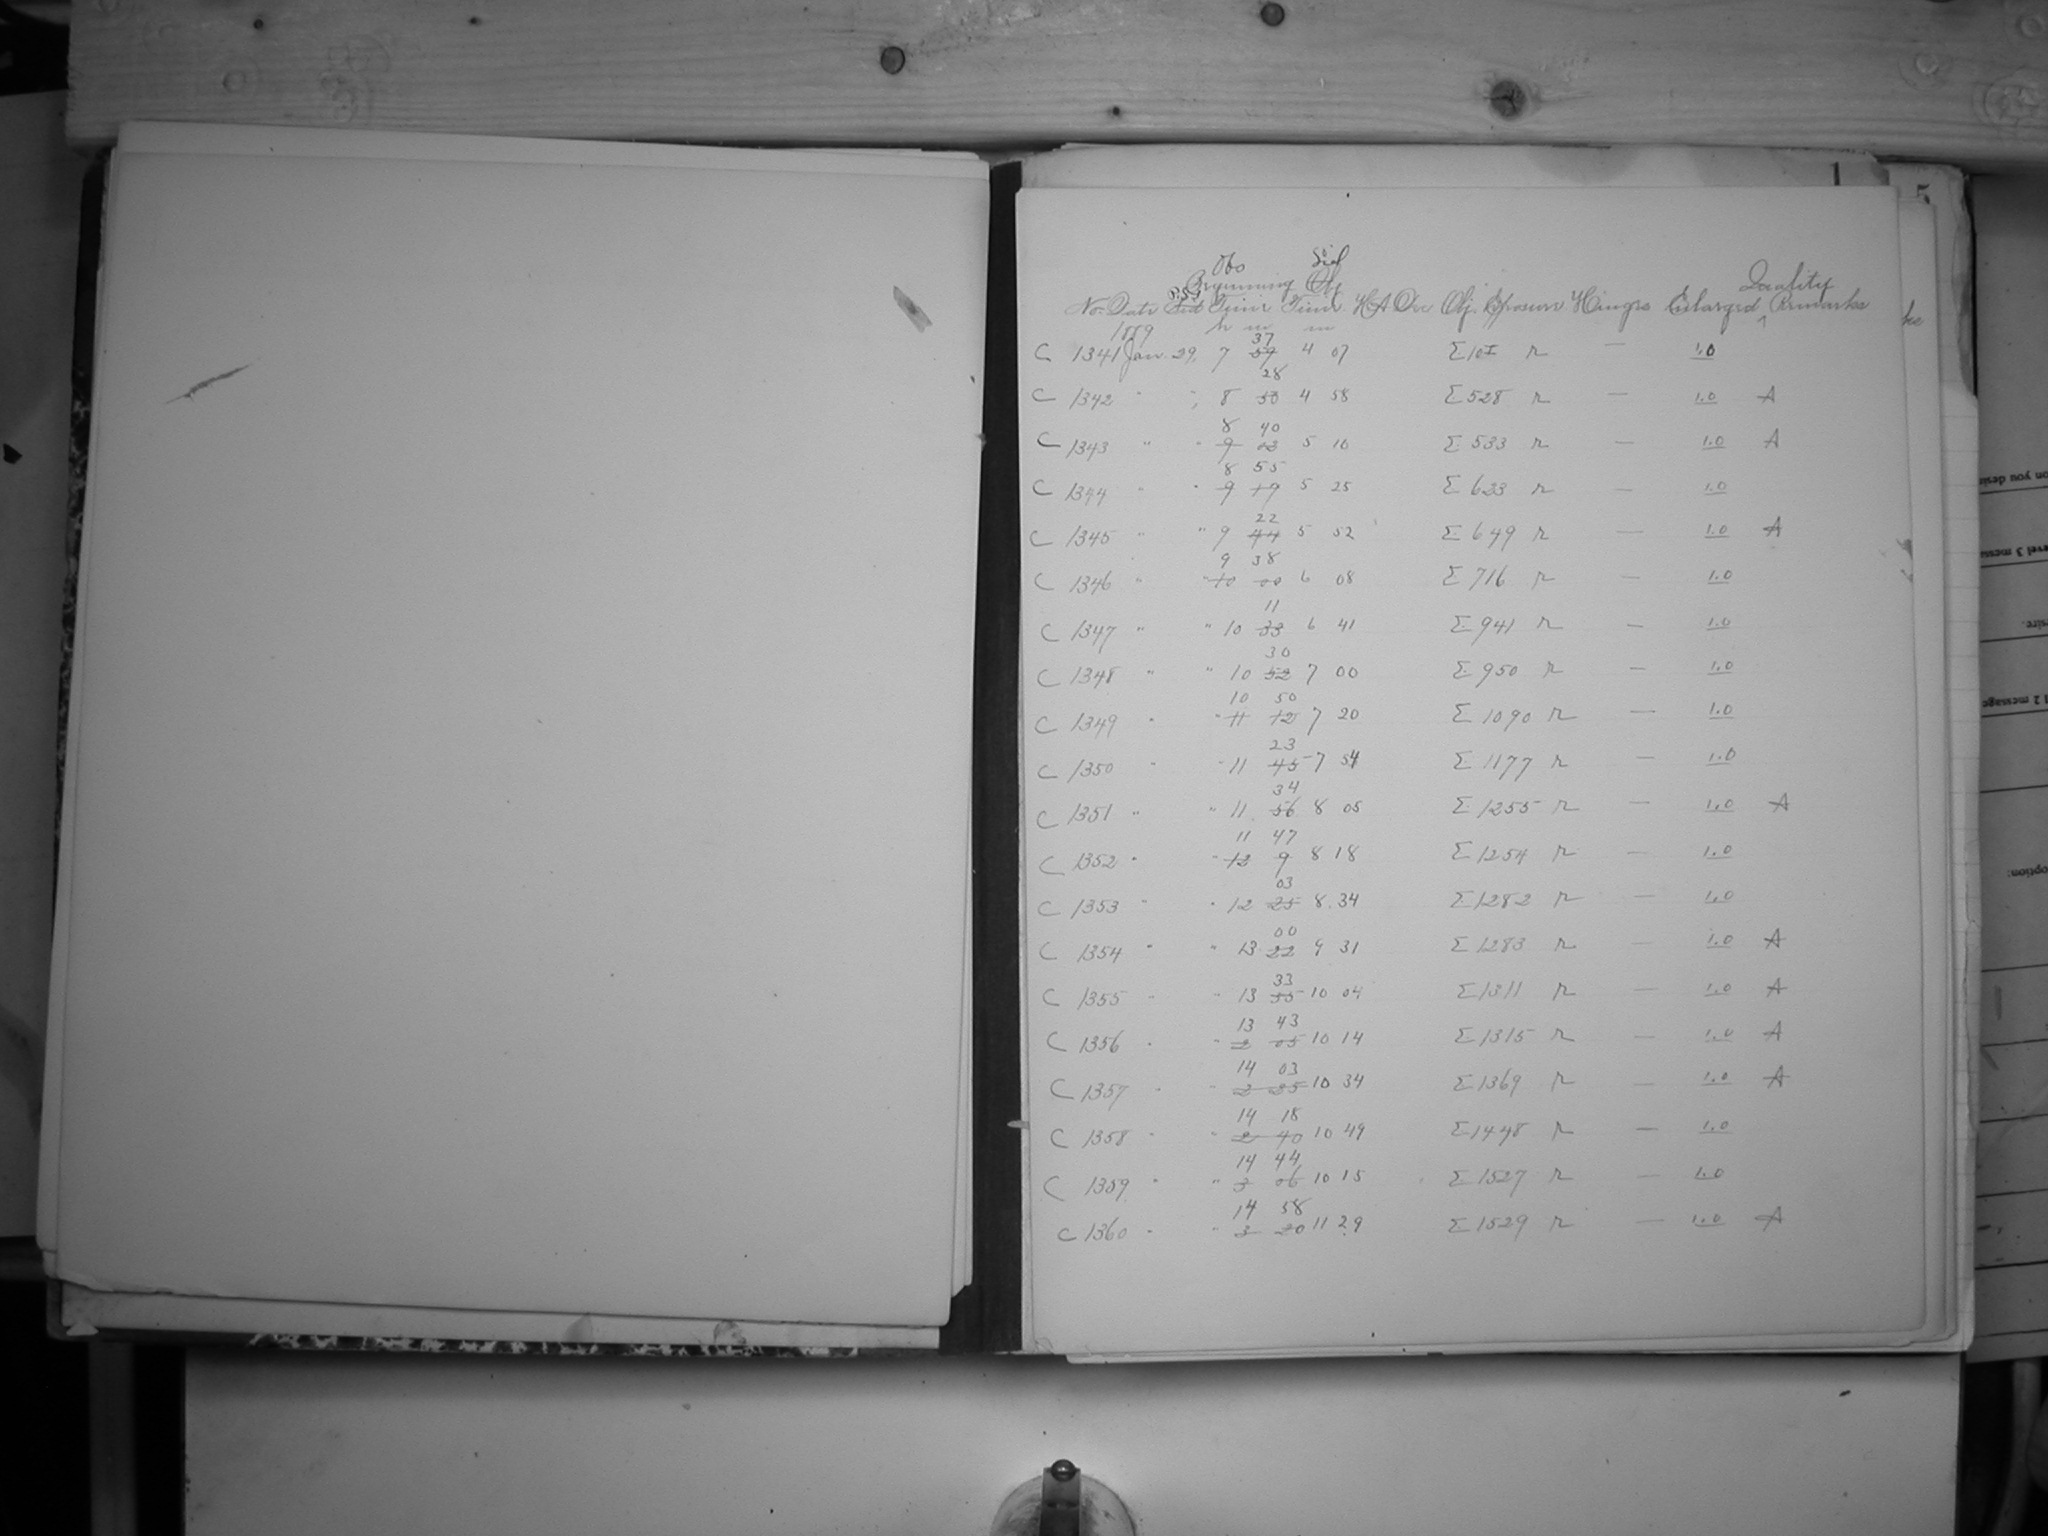 Obs Sid
Beginning Of Quality
No. Date Time Time HA Dec Obj. Exposure Enlarged Remarks
1889 h m m
37
C 1341 Jan. 29, 7 59 4 07 Σ 10I r — 1.0
28
C 1342 " " 8 50 4 58 Σ 528 r — 1.0 A
8 40
C 1343 " " 9 02 5 10 Σ 533 r — 1.0 A
8 55
C 1344 " " 9 19 5 25 Σ 623 r — 1.0
22
C 1345 " " 9 44 5 52 Σ 649 r — 1.0 A
9 38
C 1346 " " 10 00 6 08 Σ 716 r — 1.0
11
C 1347 " " 10 33 6 41 Σ 941 r — 1.0
30
C 1348 " " 10 52 7 00 Σ 950 r — 1.0
10 50
C 1349 " " 11 12 7 20 Σ 1090 r — 1.0
23
C 1350 " " 11 45 7 54 Σ 1177 r — 1.0
34
C 1351 " " 11 56 8 05 Σ 1255 r — 1.0 A
11 47
C 1352 " " 12 9 8 18 Σ 1254 r — 1.0
03
C 1353 " " 12 25 8 34 Σ 1282 r — 1.0
00
C 1354 " " 13 22 9 31 Σ 1283 r — 1.0 A
33
C 1355 " " 13 55 10 04 Σ 1311 r — 1.0 A
13 43
C 1356 " " 2 05 10 14 Σ 1315 r — 1.0 A
14 03
C 1357 " " 2 25 10 34 Σ 1369 r — 1.0 A
14 18
C 1358 " " 2 40 10 49 Σ 1448 r — 1.0
14 44
C 1359 " " 3 06 10 15 Σ 1527 r — 1.0
14 58
C 1360 " " 3 20 11 29 Σ 1529 r — 1.0 A
5
ke
on you desire
level 3 messa
sire.
l 2 message
option: